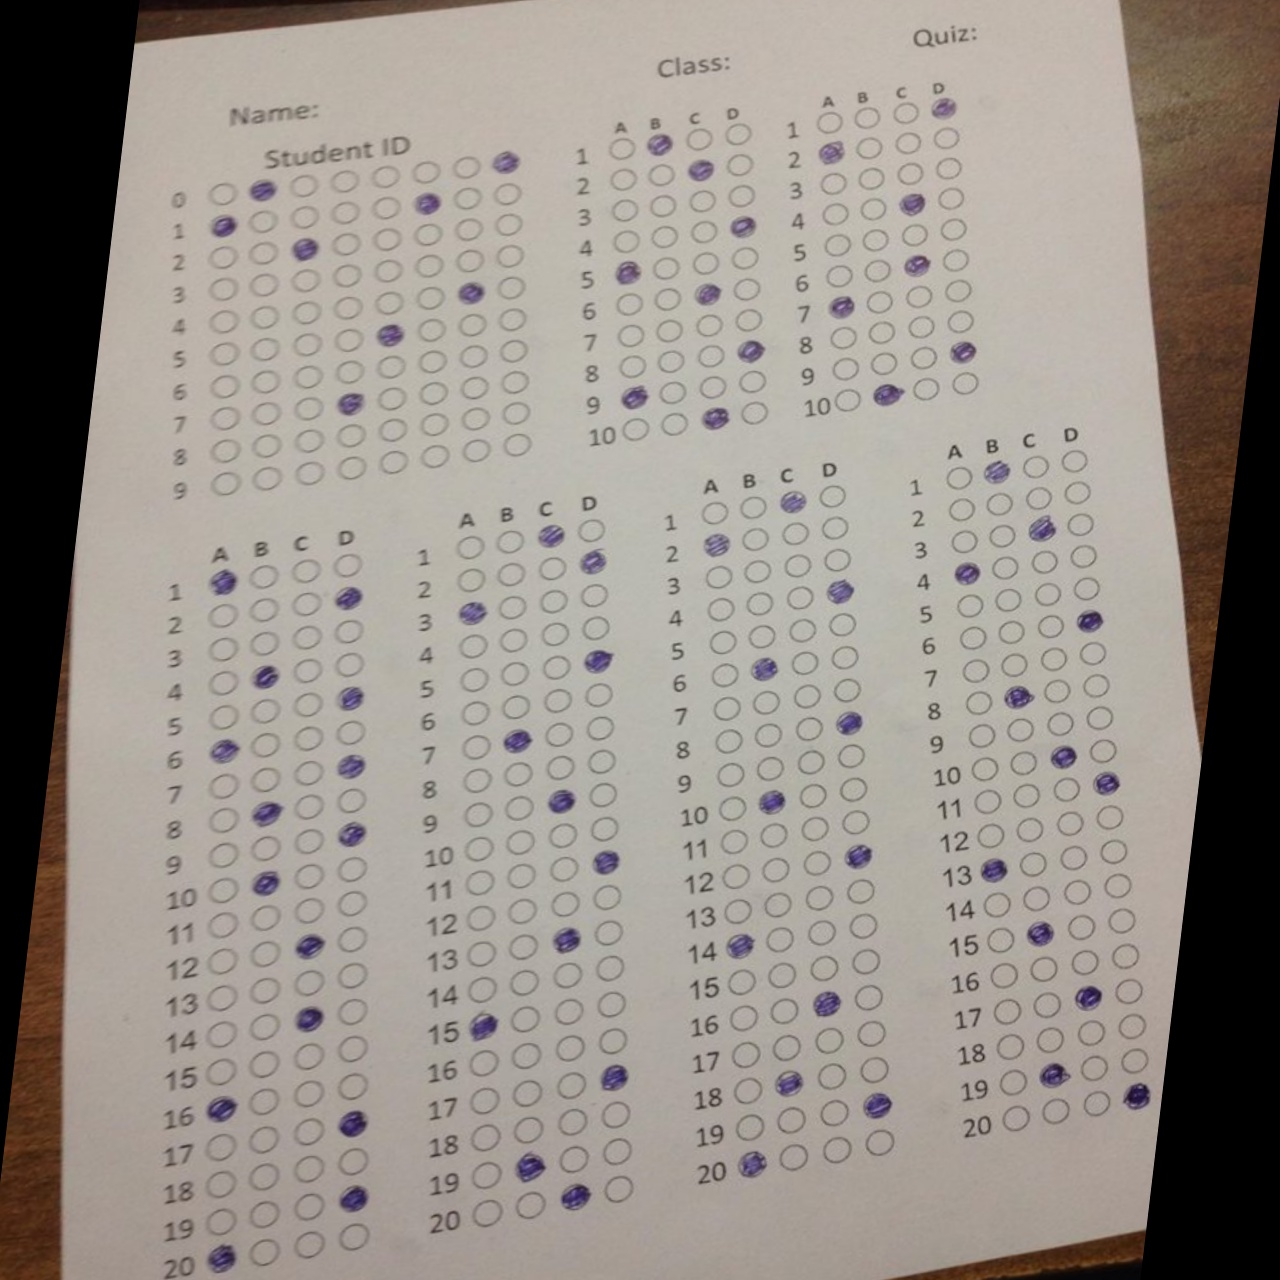 Name:
Class:
Quiz:
Student ID
0
1
2
3
4
5
6
7
8
9
A B C D
1
2
3
4
5
6
7
8
9
10
A B C D
1
2
3
4
5
6
7
8
9
10
A B C D
1
2
3
4
5
6
7
8
9
10
11
12
13
14
15
16
17
18
19
20
A B C D
1
2
3
4
5
6
7
8
9
10
11
12
13
14
15
16
17
18
19
20
A B C D
1
2
3
4
5
6
7
8
9
10
11
12
13
14
15
16
17
18
19
20
A B C D
1
2
3
4
5
6
7
8
9
10
11
12
13
14
15
16
17
18
19
20